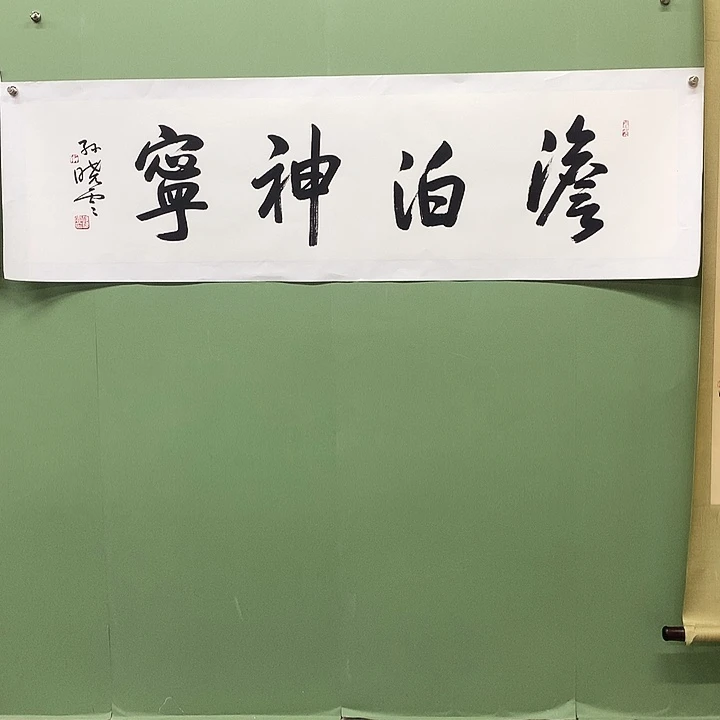 澹泊神寧
孙晓云